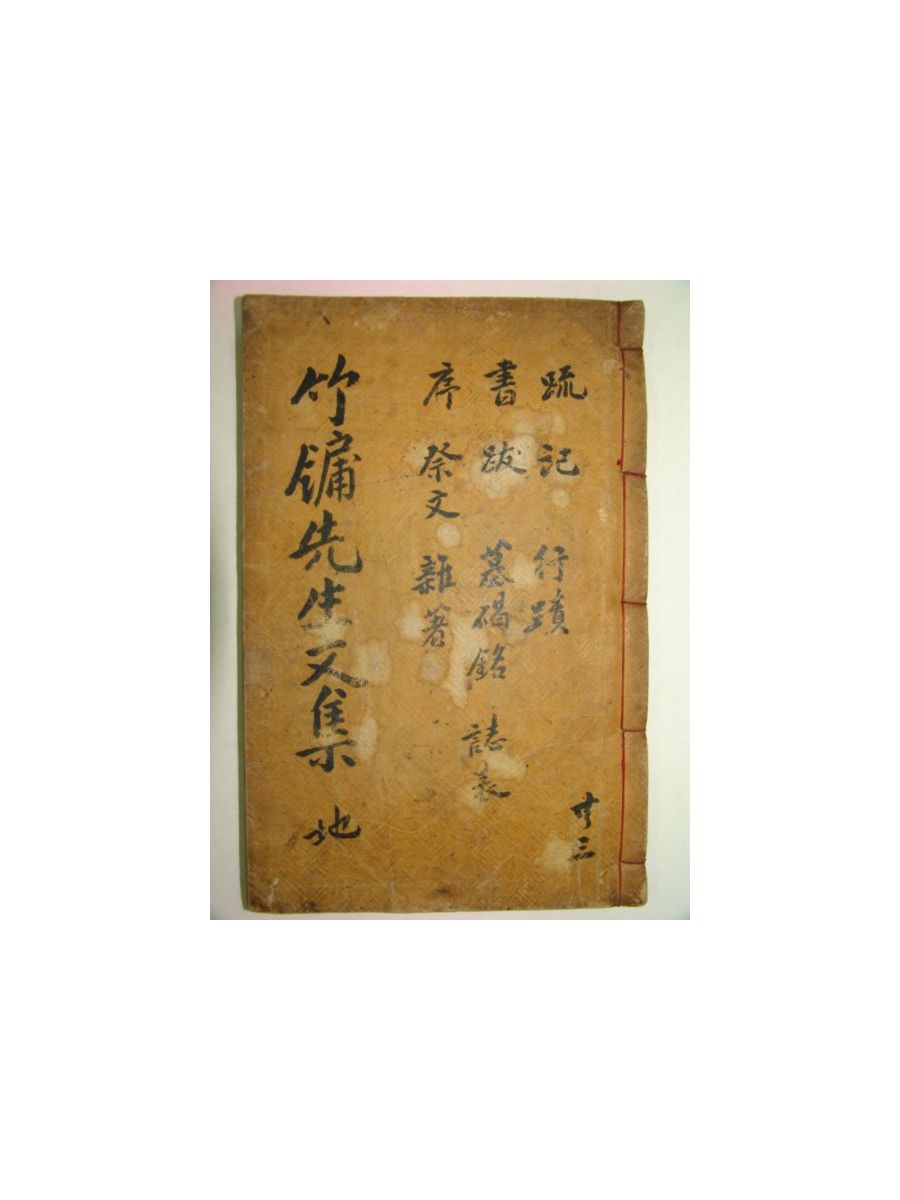 疏 記 行蹟
書 跋 墓碣銘 誌表
序 祭文 雜著
竹牖先生文集 地
共三